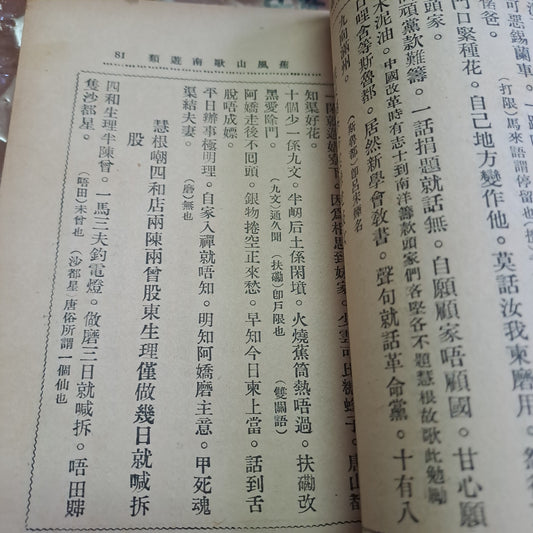 可惡錫蘭車。(打限)馬來語謂停留也
爸。
門口緊種花。自己地方變作他。莫話汝我東磨用。
頭家。
頑黨款難籌。一話捐題就話無。自願顧家唔顧國。甘心願
木泥油。中國改革時有志士到南洋籌款頭家們客堅各不題慧根故歌此勉勵
哩舍等斯魯都。居然新學會教書。聲句就話革命黨。十有八
蕉風山歌南遊類 81
知渠好花。
十個少一係九文。半㘭后土係閑墳。火燒蕉筒熱唔過。扶磡改
黑愛除門。(九文)通久聞 (扶磡)卽戶限也 (雙關語)
阿嬌走後不囘頭。銀物捲空正來愁。早知今日東上當。話到舌
脫唔成嫖。
平日辦事極明理。自家入禪就唔知。明知阿嬌磨主意。甲死魂
渠結夫妻。(磨)無也
慧根嘲四和店兩陳兩曾股東生理僅做幾日就喊拆
股
四和生理半陳曾。一馬三夫釣電燈。做磨三日就喊拆。唔田歸
隻沙都星。(唔田)未曾也 (沙都星)唐俗所謂一個仙也